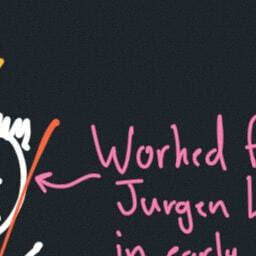 Worked f
Jurgen L
in early